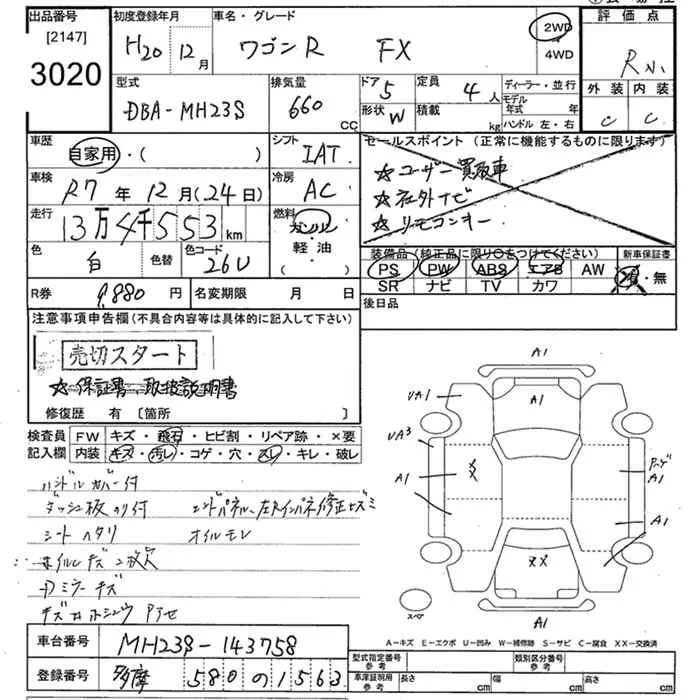 出品番号 初度登録年月 車名・グレード 評価点
[2147]
3020
H20年 12月 ワゴンR FX 2WD ・ 4WD R小
型式 排気量 ドア 5 定員 4人 ディーラー・並行 外装 内装
DBA-MH23S 660 cc 形状 W 積載 kg モデル年式 年 C C
ハンドル 左・右
車歴 シフト セールスポイント (正常に機能するものに限ります)
自家用・( ) IAT ☆ユーザー買取車
車検 冷房 ☆社外ナビ
R7年12月(24日) AC ☆リモコンキー
走行 燃料
13万4千553km ガソリン
軽・油
・( )
色 白 色替 色コード 26U 装備品 (純正品に限り○をつけてください) 新車保証書
PS PW ABS エアB AW 有・無
SR ナビ TV カワ
R券 9,880円 名変期限 月 日 後日品
注意事項申告欄 (不具合内容等は具体的に記入して下さい)
売切スタート
☆保証書、取扱説明書
修復歴 有 [箇所 ]
検査員 FW キズ・飛石・ヒビ割・リペア跡・×要
記入欄 内装 キズ・汚レ・コゲ・穴・スレ・キレ・破レ
ハンドルカバー付
ダッシュ板のり付 エンドパネル、左Rインパネ修正ヒズミ
シートヘタリ オイルモレ
ホイルキズ2枚欠
ミラーキズ
A1
A1
UA1
UA3
A1
XX
A1
A1
XX
A1
スペア
A-キズ E-エクボ U-凹み W-補修跡 S-サビ C-腐食 XX-交換済
車台番号 MH23S-143758 型式指定番号 参考 類別区分番号 参考
登録番号 多摩 580 の 1563 車庫証明用 参考 長さ cm 幅 cm 高さ cm